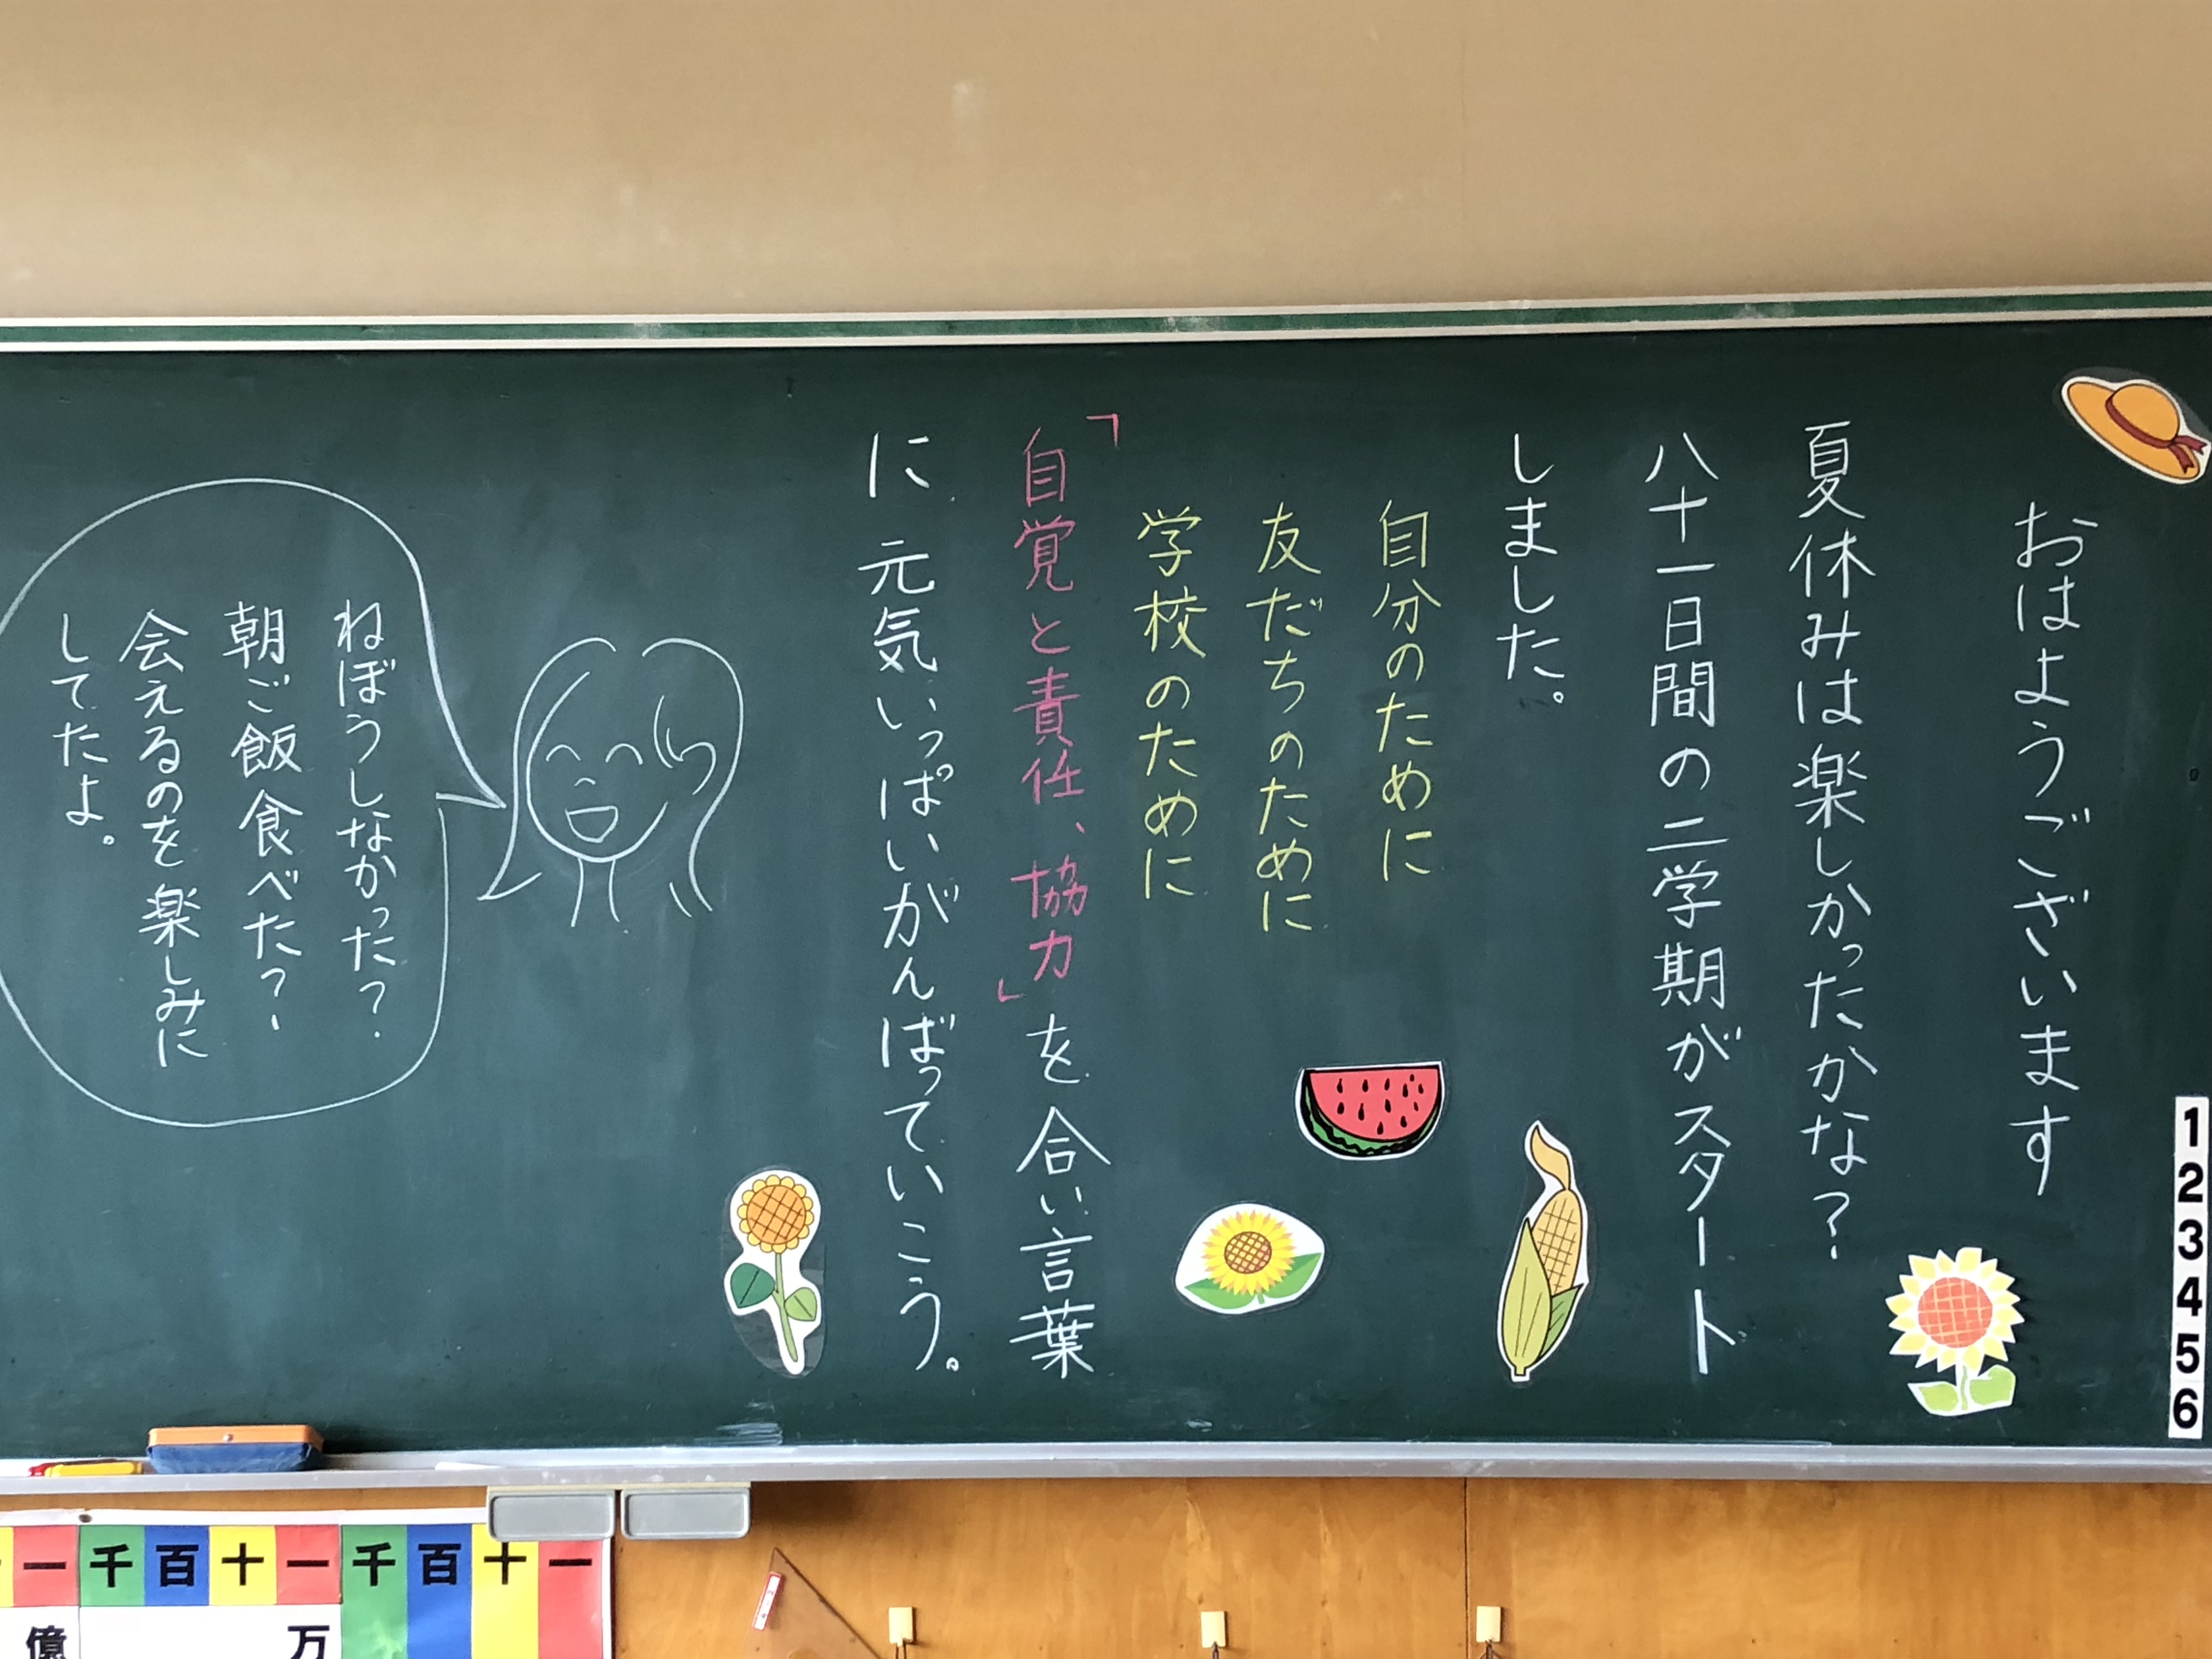 おはようございます
夏休みは楽しかったかな？
八十一日間の二学期がスタート
しました。
自分のために
友だちのために
学校のために
「自覚と責任、協力」を合い言葉
に元気いっぱいがんばっていこう。
ねぼうしなかった？
朝ご飯食べた？
会えるのを楽しみに
してたよ。
1
2
3
4
5
6
一千百十一千百十一
億 万